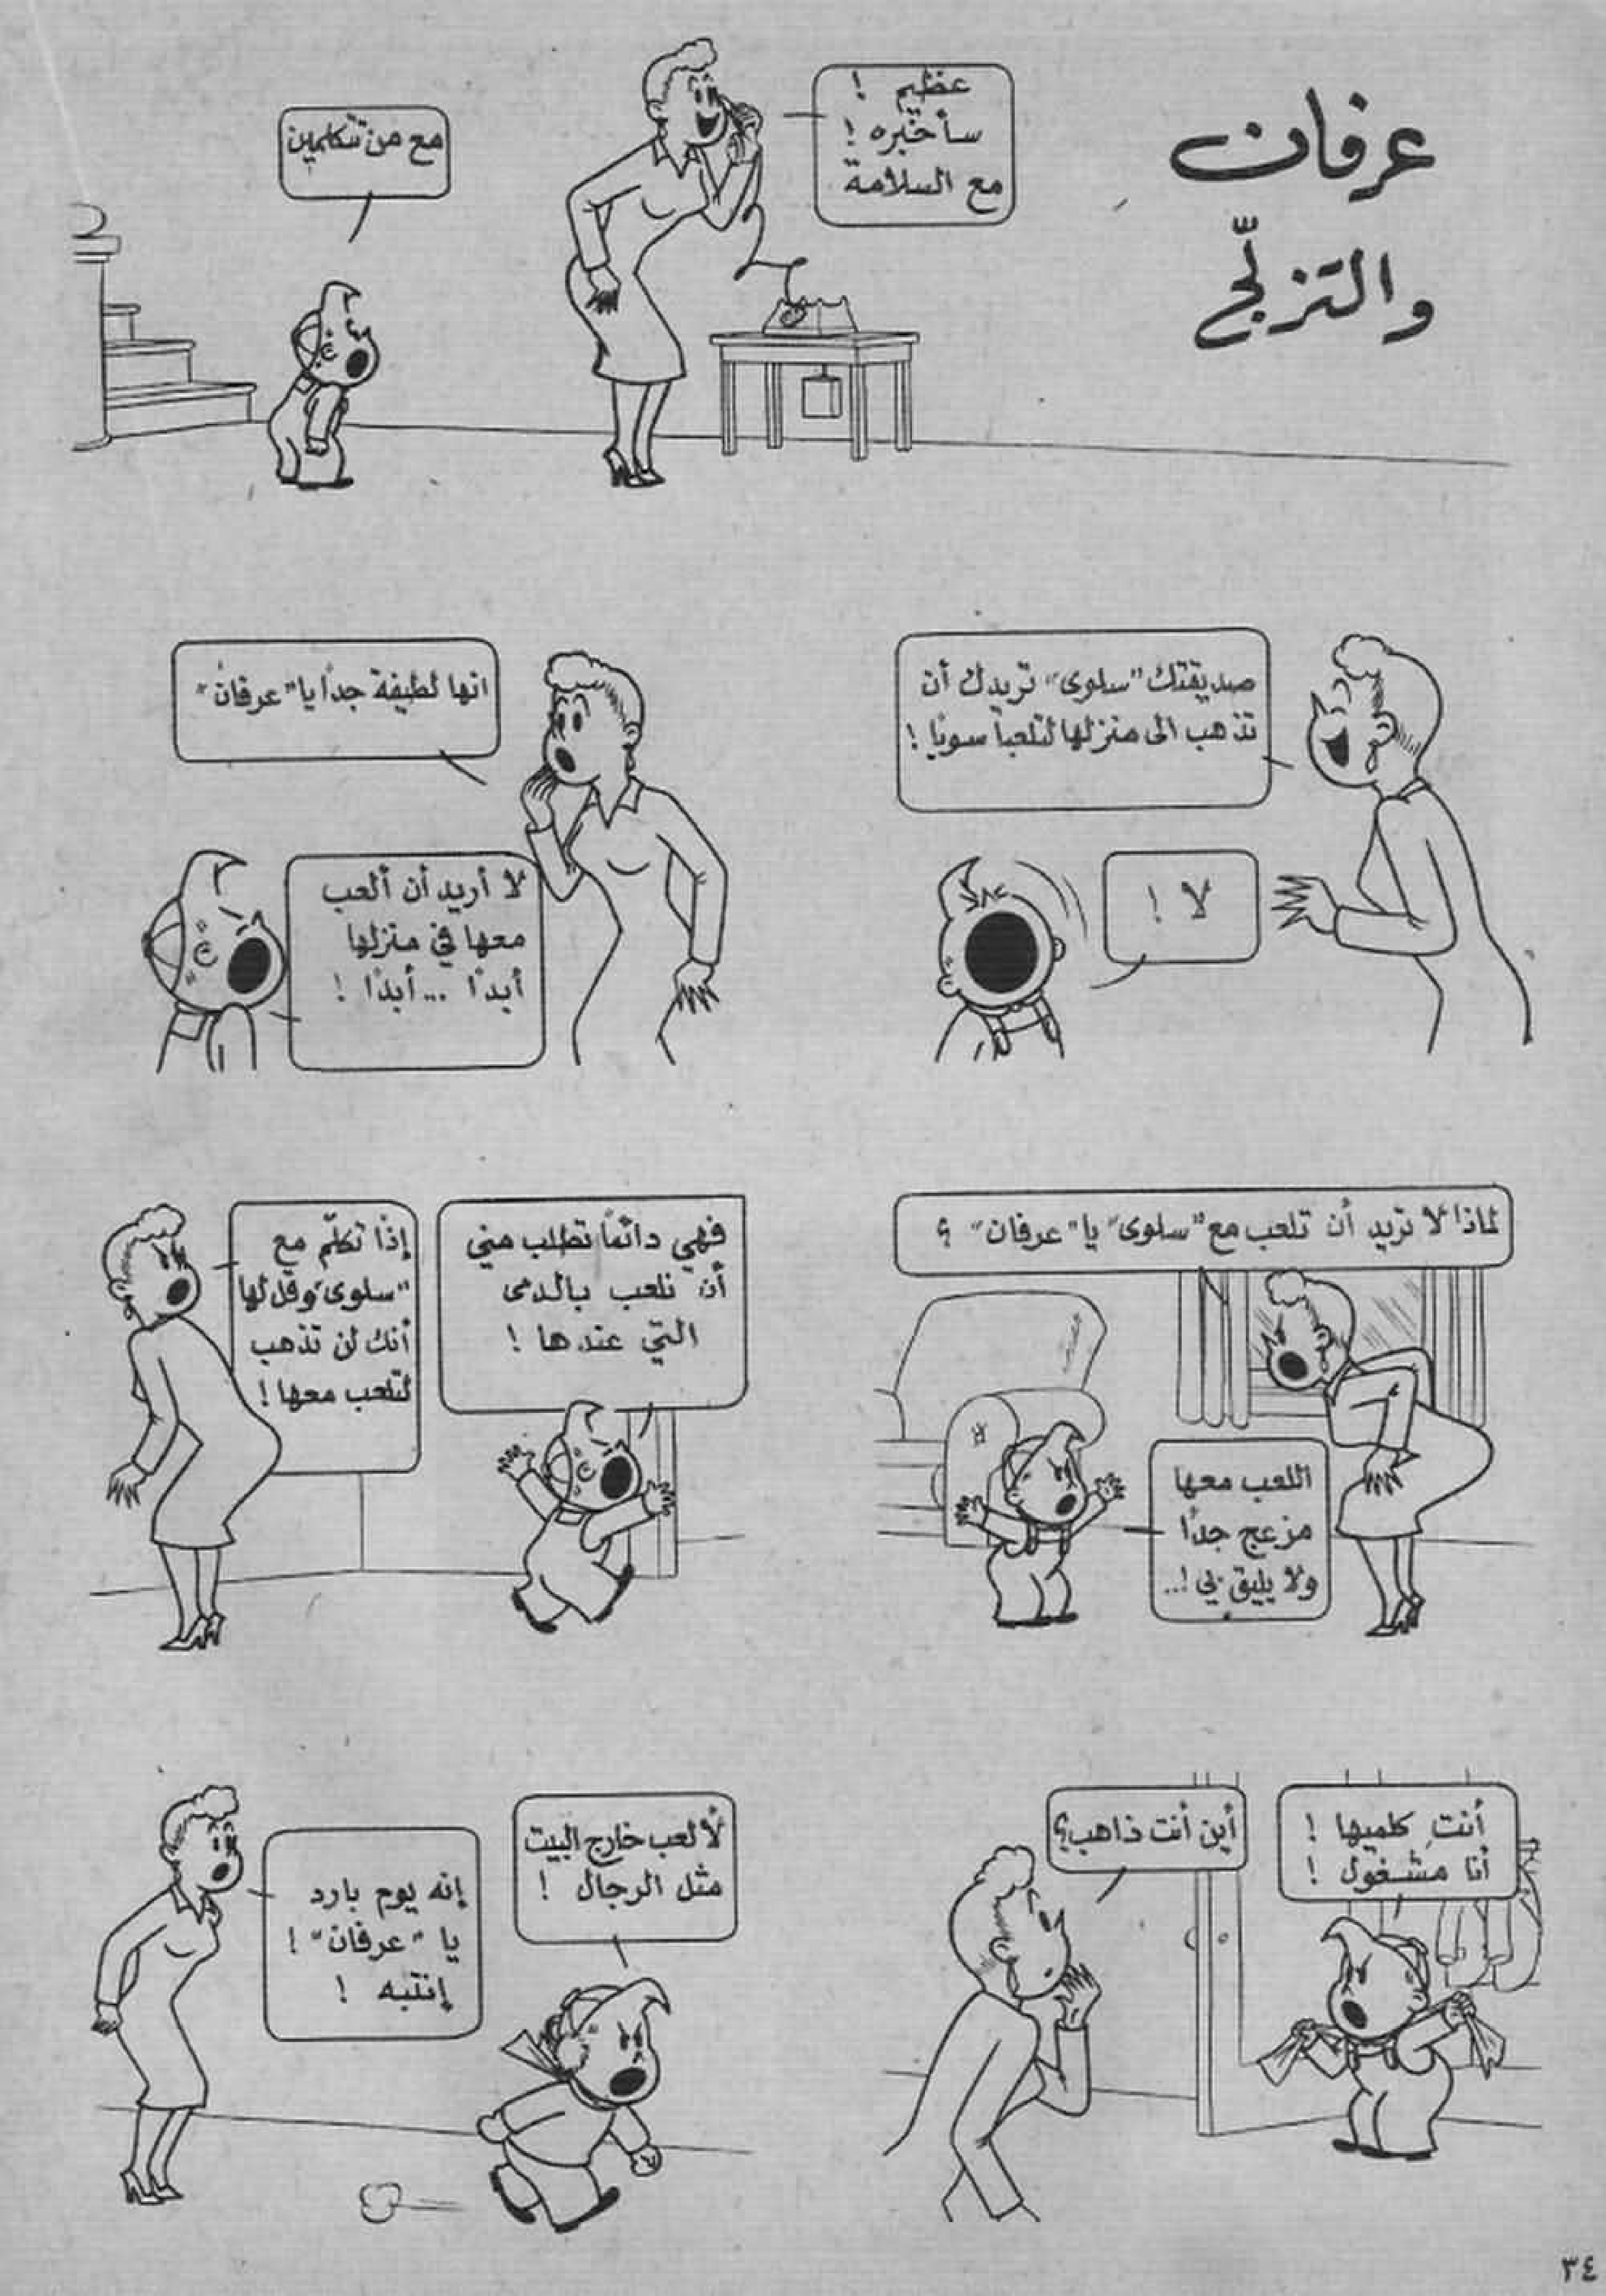 عرفان
والتزلّج
عظيم !
سأخبره !
مع السلامة
مع من تتكلمين
صديقتك "سلوى" تريدك أن
تذهب الى منزلها لتلعبا سويا !
لا !
انها لطيفة جدا يا "عرفان"
لا أريد أن ألعب
معها في منزلها
أبدًا ... أبدًا !
لماذا لا تريد أن تلعب مع "سلوى" يا "عرفان" ؟
اللعب معها
مزعج جدًا
ولا يليق بي !..
فهي دائمًا تطلب مني
أن نلعب بالدمى
التي عندها !
إذًا تكلّم مع
"سلوى" وقل لها
أنك لن تذهب
لتلعب معها !
أنتِ كلميها !
أنا مشغول !
أين أنت ذاهب؟
لألعب خارج البيت
مثل الرجال !
إنه يوم بارد
يا "عرفان" !
إنتبه !
٣٤